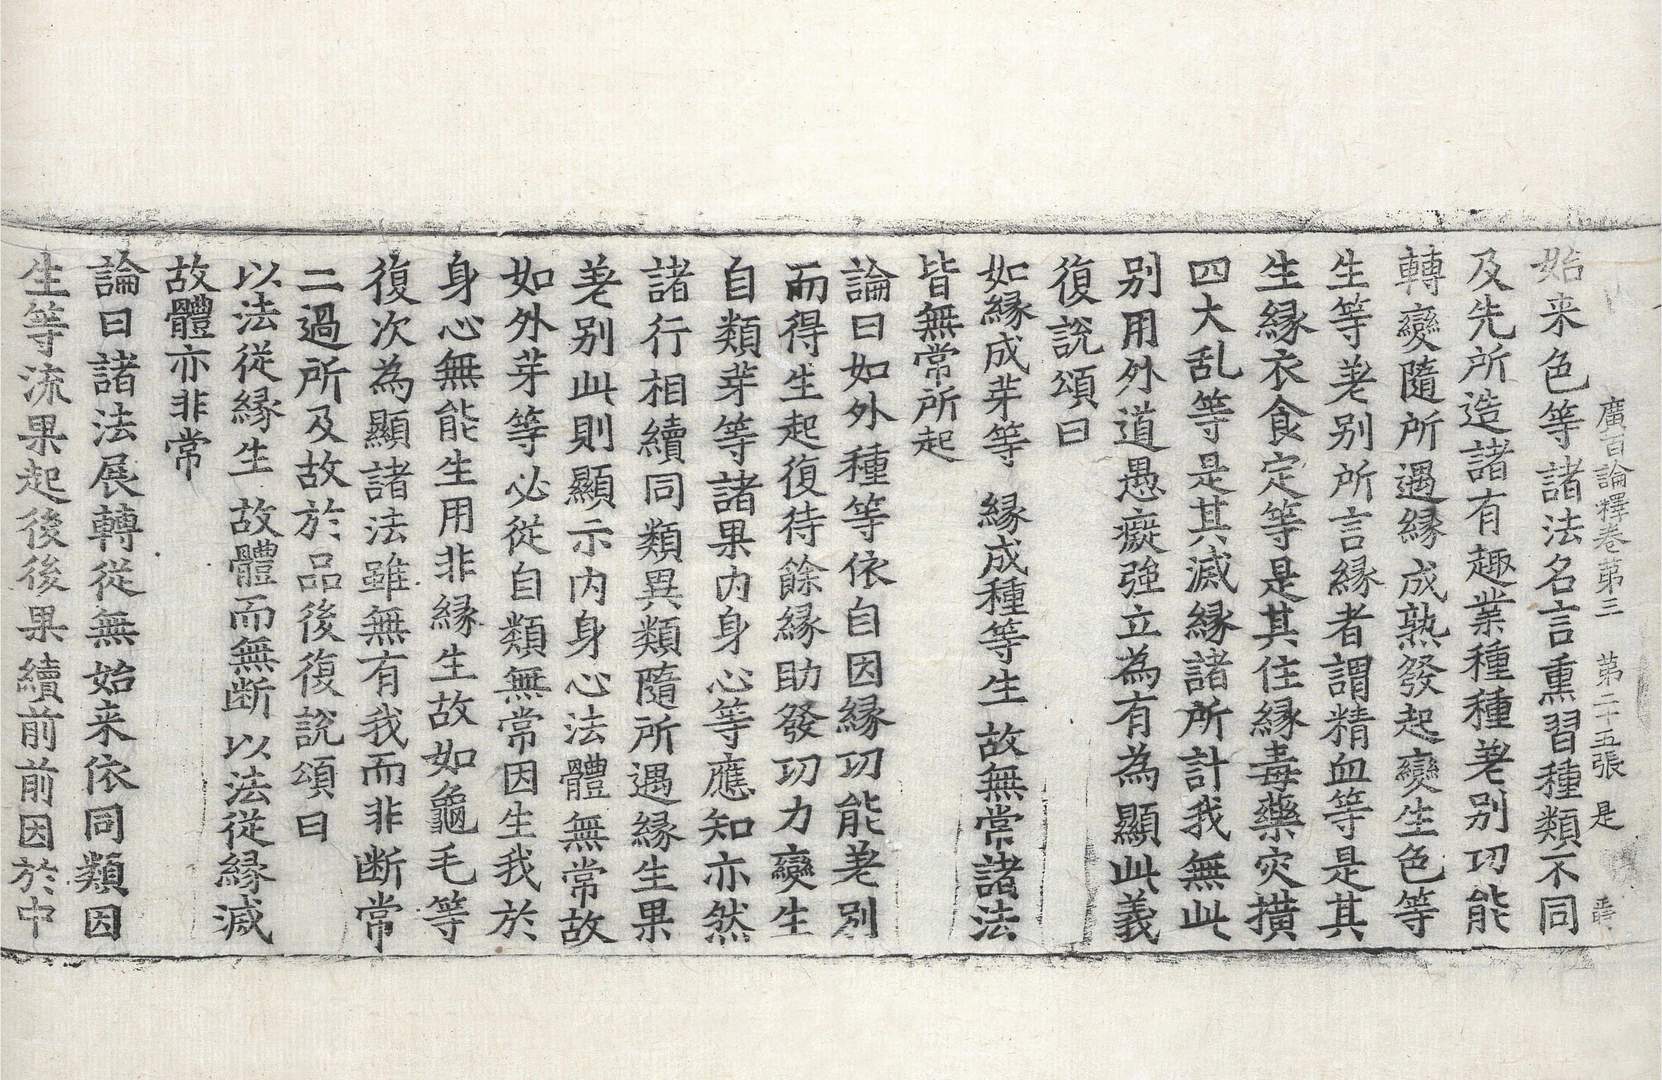 廣百論釋卷第三 第二十五張 是
始来色等諸法名言熏習種類不同
及先所造諸有趣業種種差别功能
轉變隨所遇緣成熟發起變生色等
生等差别所言緣者謂精血等是其
生緣衣食定等是其住緣毒藥灾橫
四大乱等是其滅緣諸所計我無此
别用外道愚癡強立為有為顯此義
復說頌曰
如緣成芽等 緣成種等生 故無常諸法
皆無常所起
論曰如外種等依自因緣功能差别
而得生起復待餘緣助發功力變生
自類芽等諸果内身心等應知亦然
諸行相續同類異類隨所遇緣生果
差别此則顯示内身心法體無常故
如外芽等必從自類無常因生我於
身心無能生用非緣生故如龜毛等
復次為顯諸法雖無有我而非断常
二過所及故於品後復說頌曰
以法從緣生 故體而無断 以法從緣滅
故體亦非常
論曰諸法展轉從無始来依同類因
生等流果起後後果續前前因於中